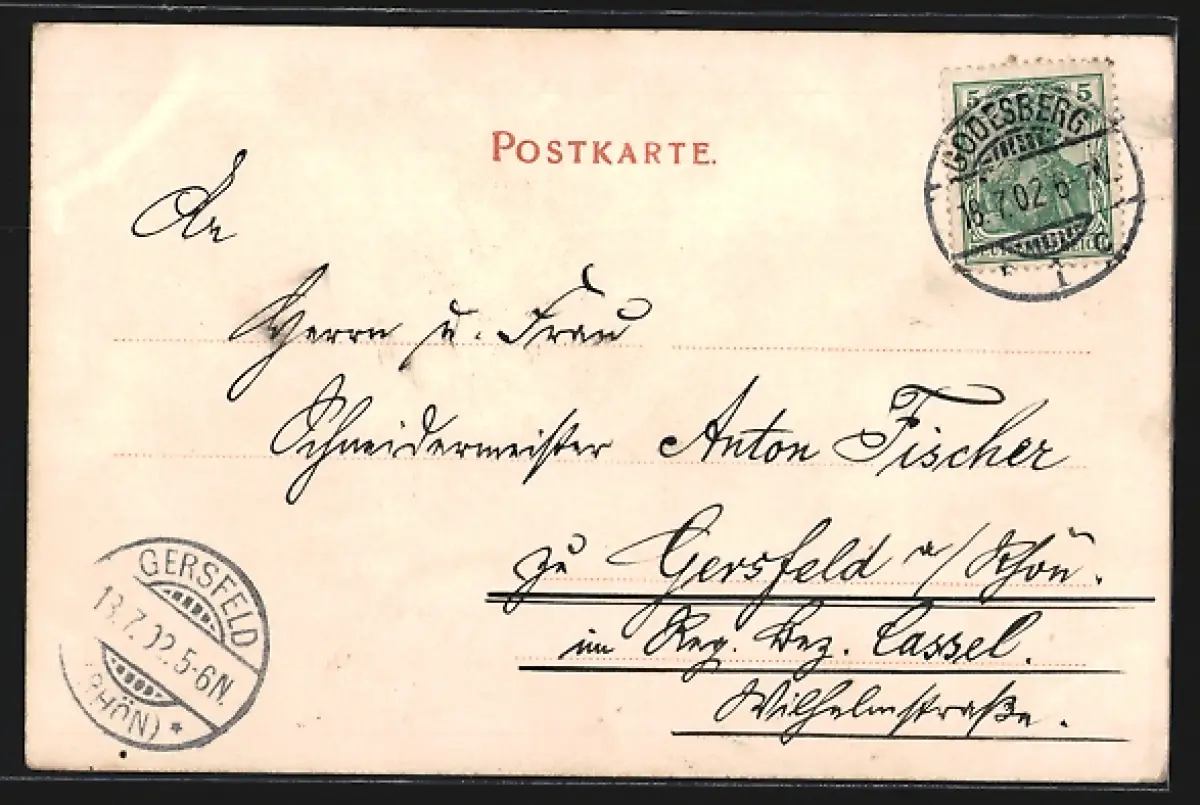 POSTKARTE.
5 5
GODESBERG
18.7.02.6-7N.
1 c
An
Herrn u. Frau
Schneidermeister Anton Fischer
zu Gersfeld a/Rhön.
im Reg. Bez. Cassel.
Wilhelmstraße.
GERSFELD
13.7.02.5-6N.
(RHÖN) *